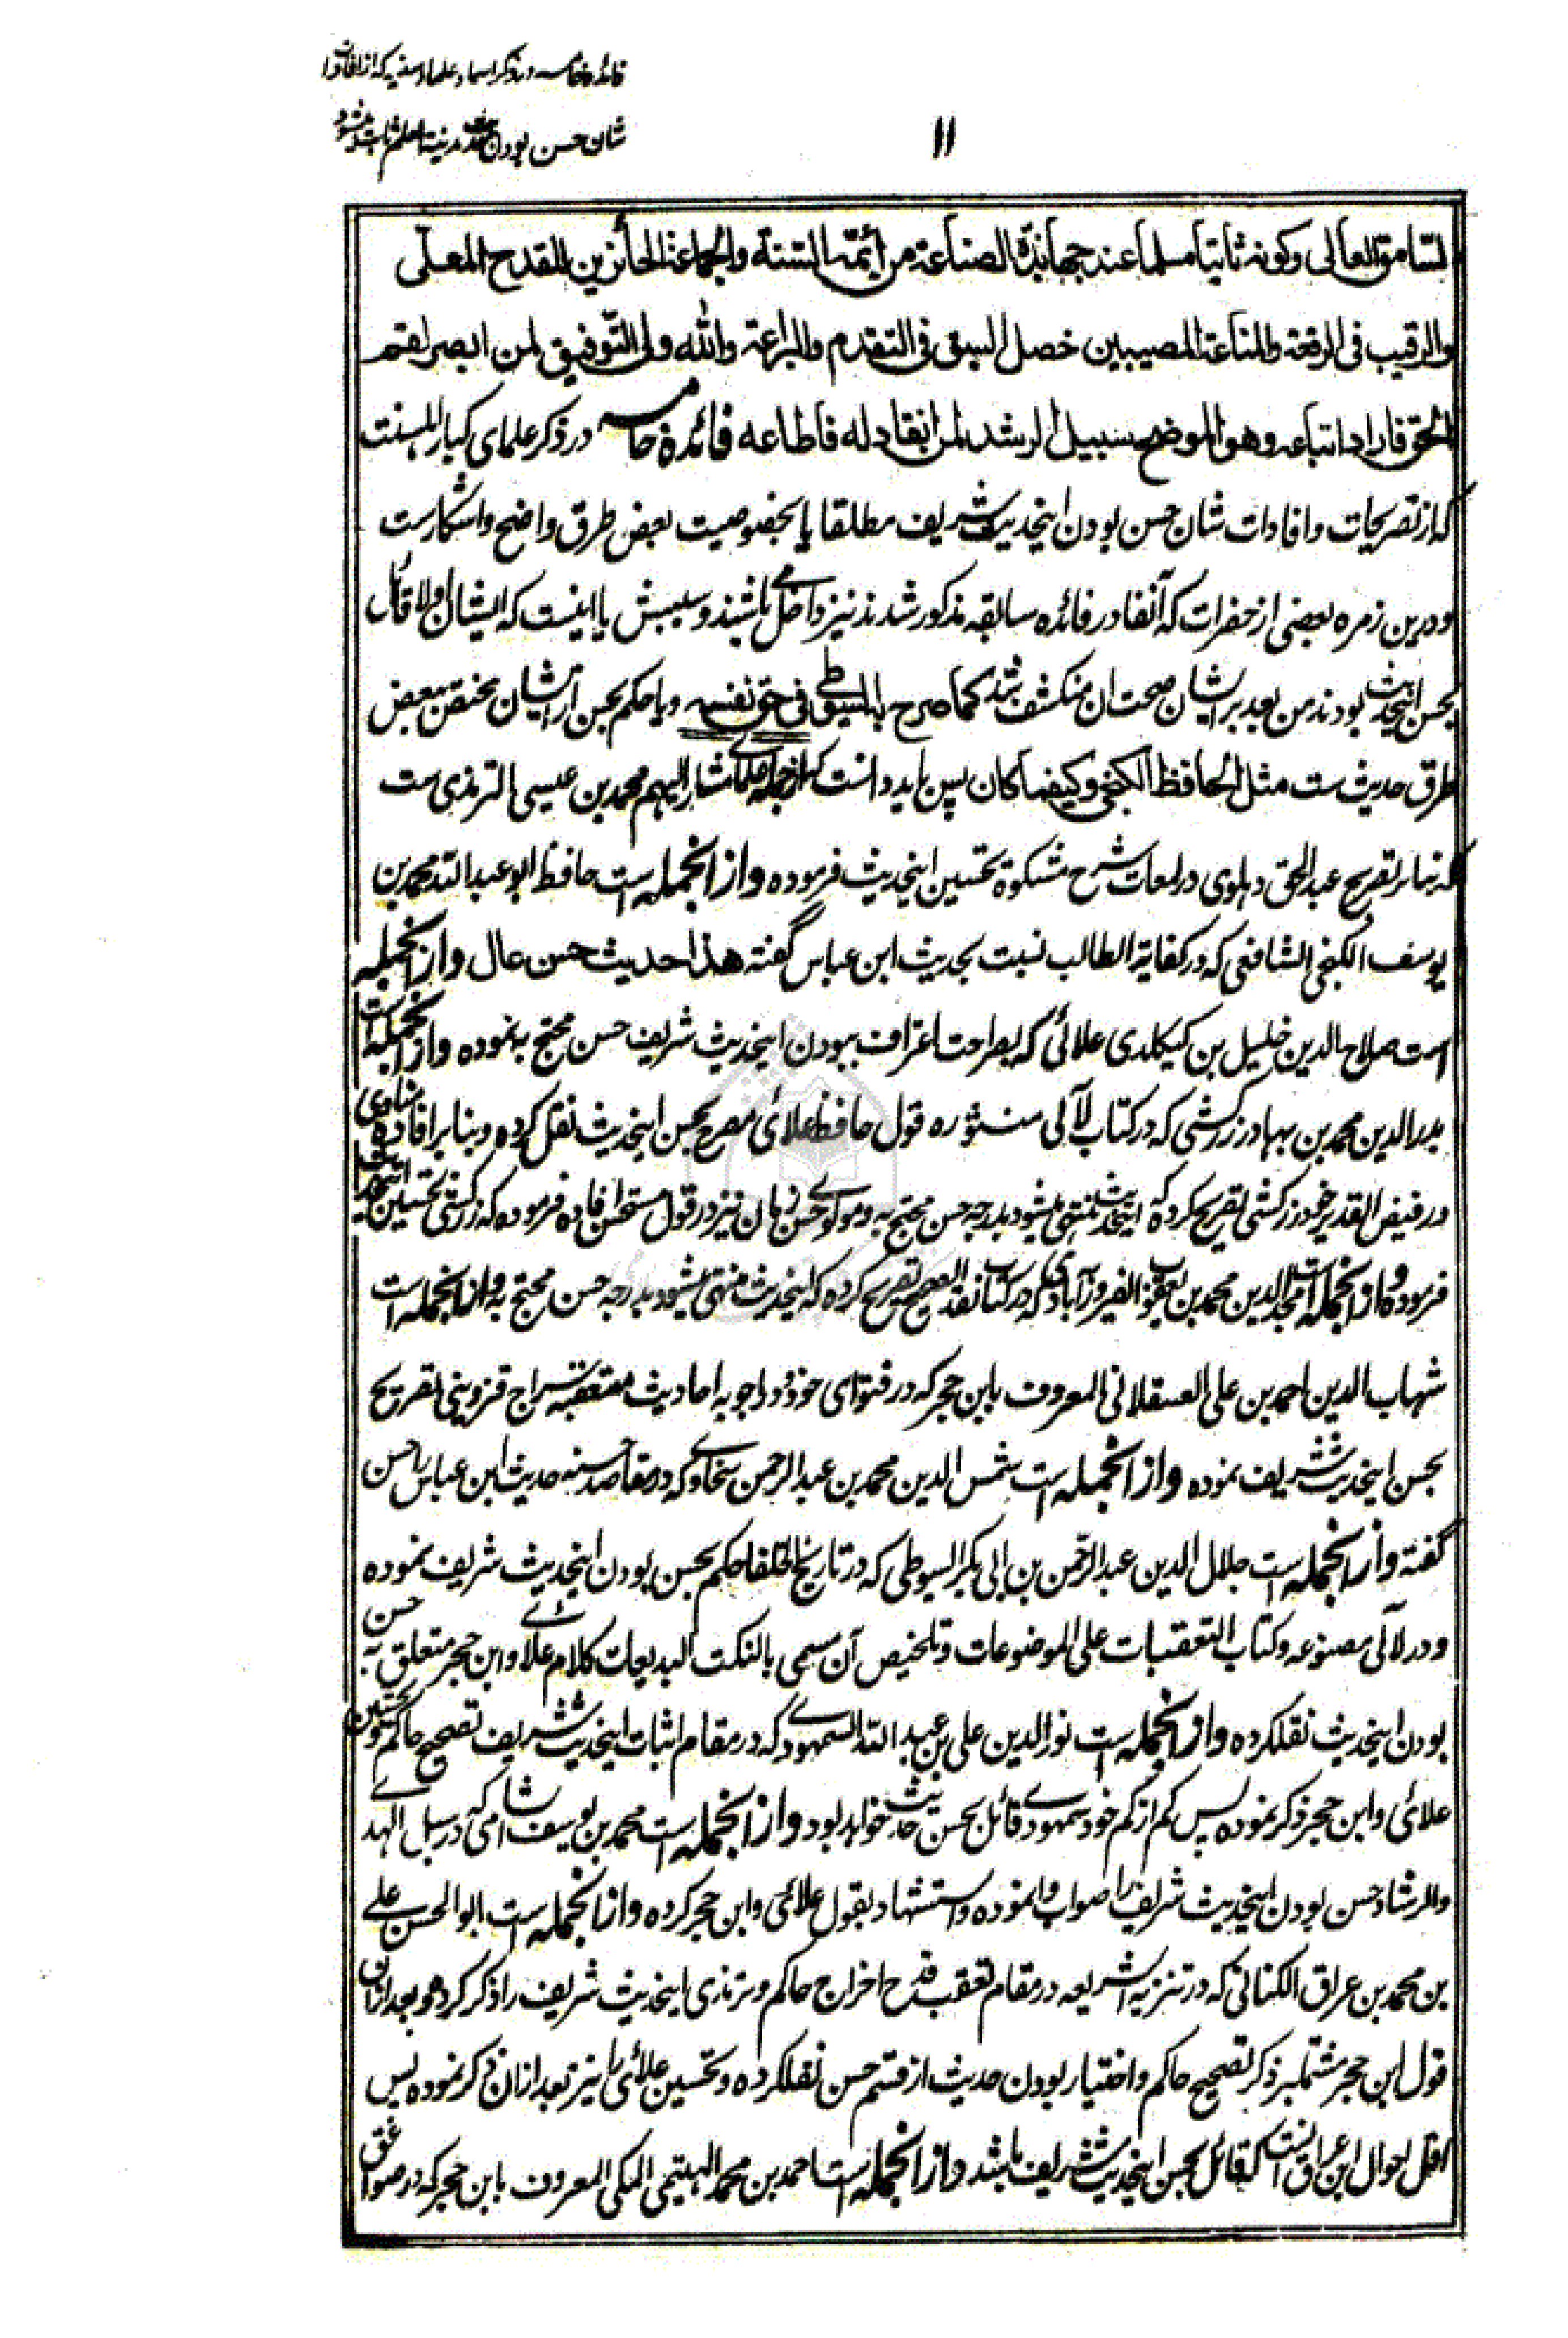 فائده خامسه در ذکر اسماء علماء سنیه که از افادات
شان حسن بودن حدیث مدینة العلم ثابت میشود
۱۱
المتسامق العالی و کونه ثابتا مسلما عند جهابذة الصناعة من أئمة السنة والجماعة الحائزین للقدح المعلی
والرقیب فی الرفعة والمناعة المصیبین خصل السبق فی التقدم والبراعة والله ولی التوفیق لمن ابصر لقم
الحق فاراد اتباعه وهو الموضح سبیل الرشد لمن انقاد له فاطاعه فائده خامسه در ذکر علمای کبار اهلسنت
که از تصریحات و افادات شان حسن بودن اینحدیث شریف مطلقا یا بخصوصیت بعض طرق واضح و آشکارست
و درین زمره بعضی از حضرات که آنفا در فائده سابقه مذکور شدند نیز داخل می باشند و سببش یا اینست که ایشان اولا قائل
بحسن اینحدیث بودند من بعد بر ایشان صحت آن منکشف شد کما صرح به السیوطی فی حق نفسه و یا حکم بحسن از ایشان مختص ببعض
طرق حدیث ست مثل الحافظ الکنجی و کیفما کان پس باید دانست که از جمله علمای مشار الیهم محمد بن عیسی الترمذی ست
که بنا بر تصریح عبد الحق دهلوی در لمعات شرح مشکوة تحسین اینحدیث فرموده و از انجمله است حافظ ابو عبد الله محمد بن
یوسف الکنجی الشافعی که در کفایة الطالب نسبت بحدیث ابن عباس گفته هذا حدیث حسن عال و از انجمله
است صلاح الدین خلیل بن کیکلدی علائی که بصراحت اعتراف ببودن اینحدیث شریف حسن محتج به نموده و از انجمله است
بدر الدین محمد بن بهادر زرکشی که در کتاب لآلی منثوره قول حافظ علائی مصرح بحسن اینحدیث نقل کرده و بنا بر افاده مناوی
در فیض القدیر خود زرکشی تصریح کرده که اینحدیث منتهی میشود بدرجه حسن محتج به و مولوی حسن زمان نیز در قول مستحسن افاده فرموده که زرکشی تحسین اینحدیث
فرموده و از انجمله است مجد الدین محمد بن یعقوب الفیروزآبادی که در کتاب نقد الصحیح تصریح کرده که اینحدیث منتهی میشود بدرجه حسن محتج به و از انجمله است
شهاب الدین احمد بن علی العسقلانی المعروف بابن حجر که در فتوای خود و در اجوبه احادیث متعقبه سراج قزوینی تصریح
بحسن اینحدیث شریف نموده و از انجمله است شمس الدین محمد بن عبد الرحمن سخاوی که در مقاصد حسنه حدیث ابن عباس را حسن
گفته و از انجمله است جلال الدین عبد الرحمن بن ابی بکر السیوطی که در تاریخ الخلفا حکم بحسن بودن اینحدیث شریف نموده
و در لآلی مصنوعه و کتاب التعقبات علی الموضوعات و تلخیص آن مسمی بالنکت البدیعات کلام علائی و ابن حجر متعلق به حسن
بودن اینحدیث نقلکرده و از انجمله است نور الدین علی بن عبد الله السمهودی که در مقام اثبات اینحدیث شریف تصحیح حاکم و تحسین
علائی و ابن حجر ذکر نموده پس کم از کم خود سمهودی قائل بحسن حدیث خواهد بود و از انجمله است محمد بن یوسف شامی که در سبل الهدی
والرشاد حسن بودن اینحدیث شریف را صواب وانموده و استشهاد بقول علائی و ابن حجر کرده و از انجمله است ابو الحسن علی
بن محمد بن عراق الکنانی که در تنزیه الشریعه در مقام تعقب قدح اخراج حاکم و ترمذی اینحدیث شریف را ذکر کرده و بعد ازان
قول ابن حجر مشتملبر ذکر تصحیح حاکم و اختیار بودن حدیث از قسم حسن نقلکرده و تحسین علائی را نیز بعد ازان ذکر نموده پس
اقل احوال ابن عراق اینست که قائل بحسن اینحدیث شریف باشد و از انجمله است احمد بن محمد الهیتمی المکی المعروف بابن حجر که در صواعق